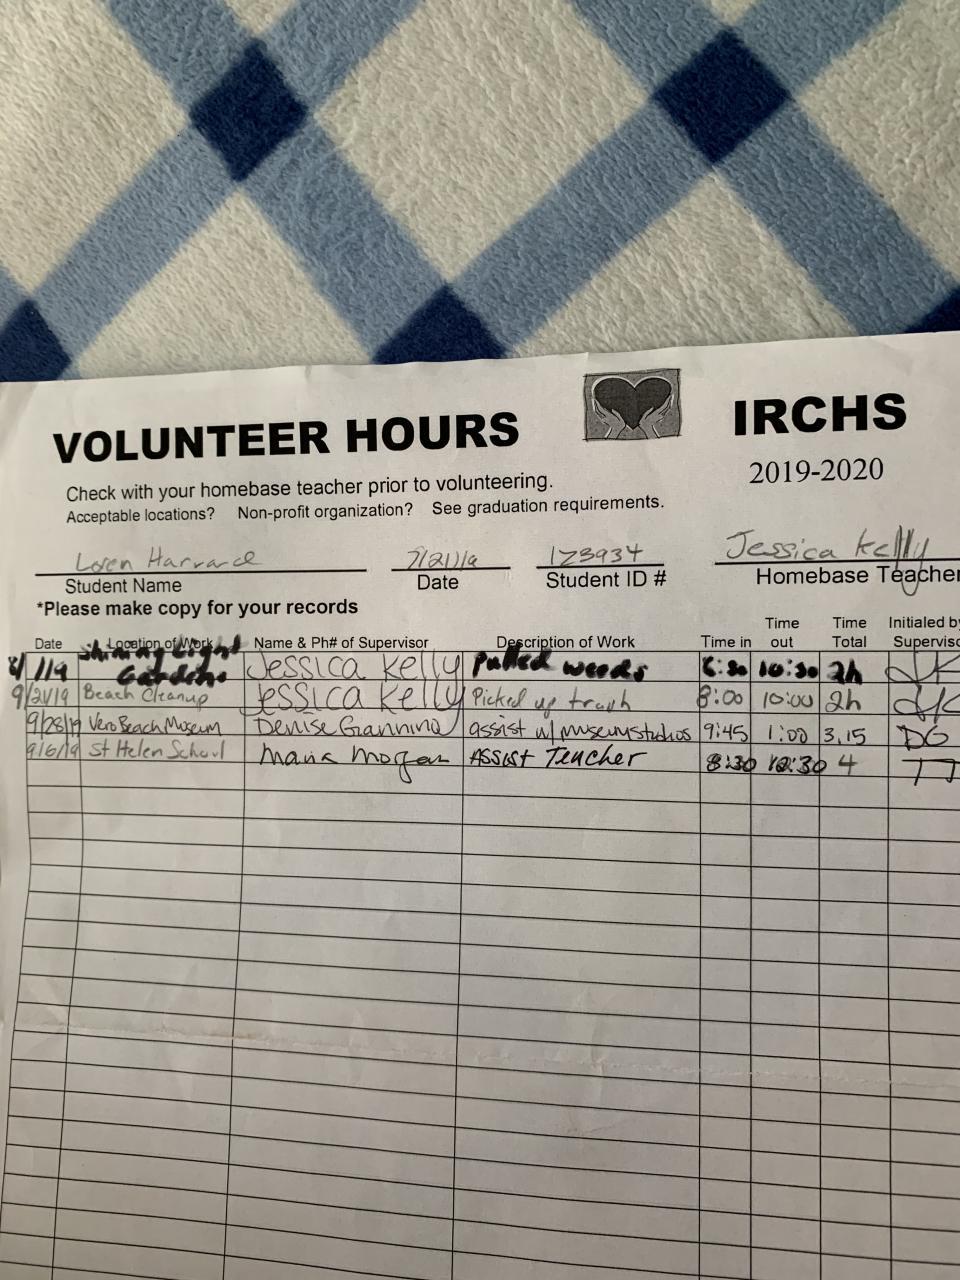 VOLUNTEER HOURS IRCHS
2019-2020
Check with your homebase teacher prior to volunteering.
Acceptable locations? Non-profit organization? See graduation requirements.
Loren Harvard 7/21/19 123934 Jessica Kelly
Student Name Date Student ID # Homebase Teacher
*Please make copy for your records
Date Location of Work Name & Ph# of Supervisor Description of Work Time in Time out Time Total Initialed by Superviso
Shining Light Gardens Jessica Kelly Pulled weeds 10:30 2h JK
9/21/19 Beach Cleanup Jessica Kelly Picked up trash 8:00 10:00 2h JK
9/28/19 Vero Beach Museum Denise Giannino assist w/ museumstudios 9:45 1:00 3.15 DG
9/6/19 St Helen School Maria Morgan Assist Teacher 8:30 12:30 4